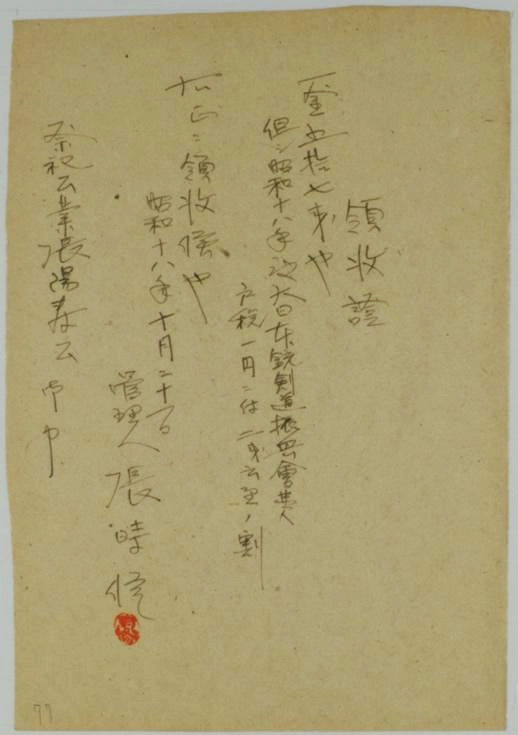 領收證
金五拾七錢也
但シ昭和十八年度大日本銃劍道振興會費
戶稅一円ニ付二錢 ノ割
右正ニ領收候也
昭和十八年十月二十日
管理人 張時
祭祀公業張陽春公 御中
77